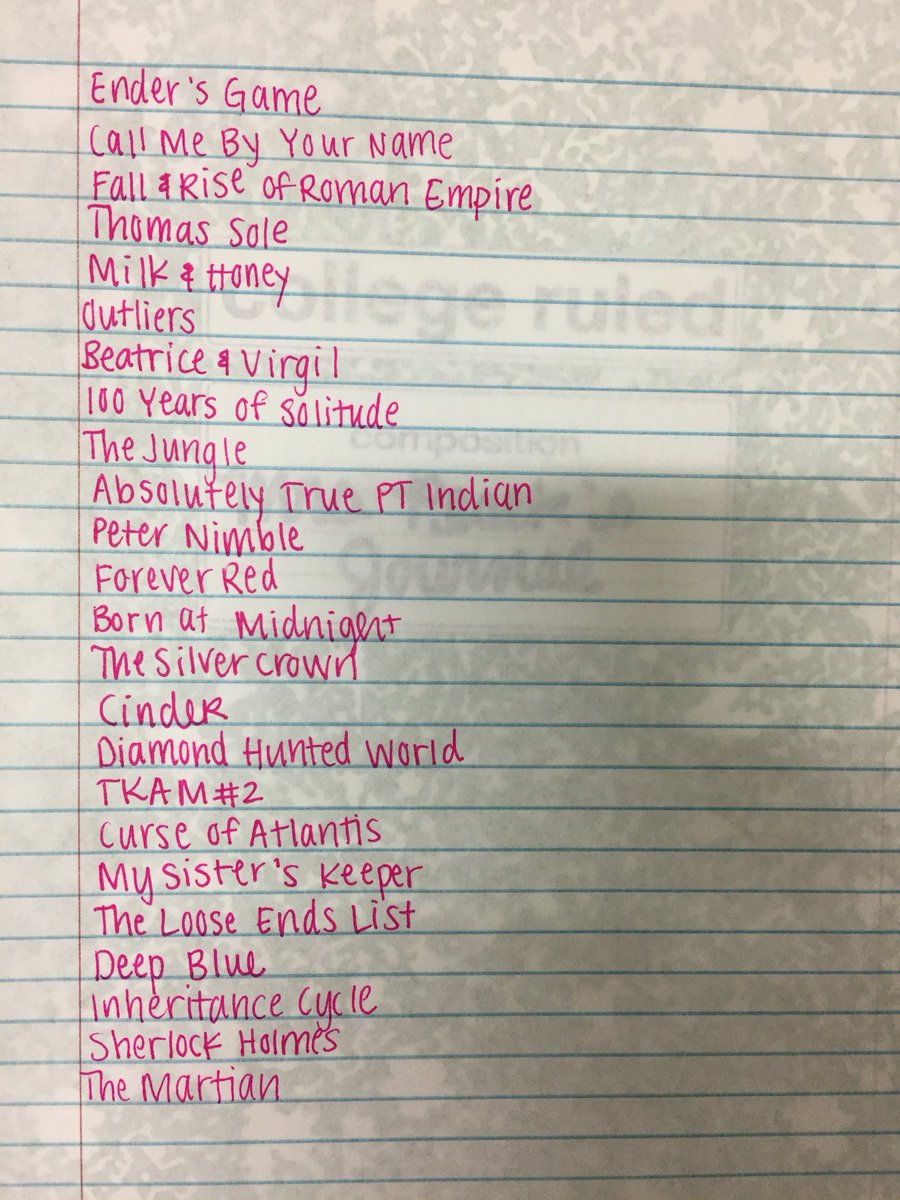 Ender's Game
Call Me By Your Name
Fall & Rise of Roman Empire
Thomas Sole
Milk & Honey
Outliers
Beatrice & Virgil
100 Years of Solitude
The Jungle
Absolutely True PT Indian
Peter Nimble
Forever Red
Born at Midnight
The Silver Crown
Cinder
Diamond Hunted World
TKAM #2
Curse of Atlantis
My Sister's Keeper
The Loose Ends List
Deep Blue
Inheritance Cycle
Sherlock Holmes
The Martian
College ruled
composition